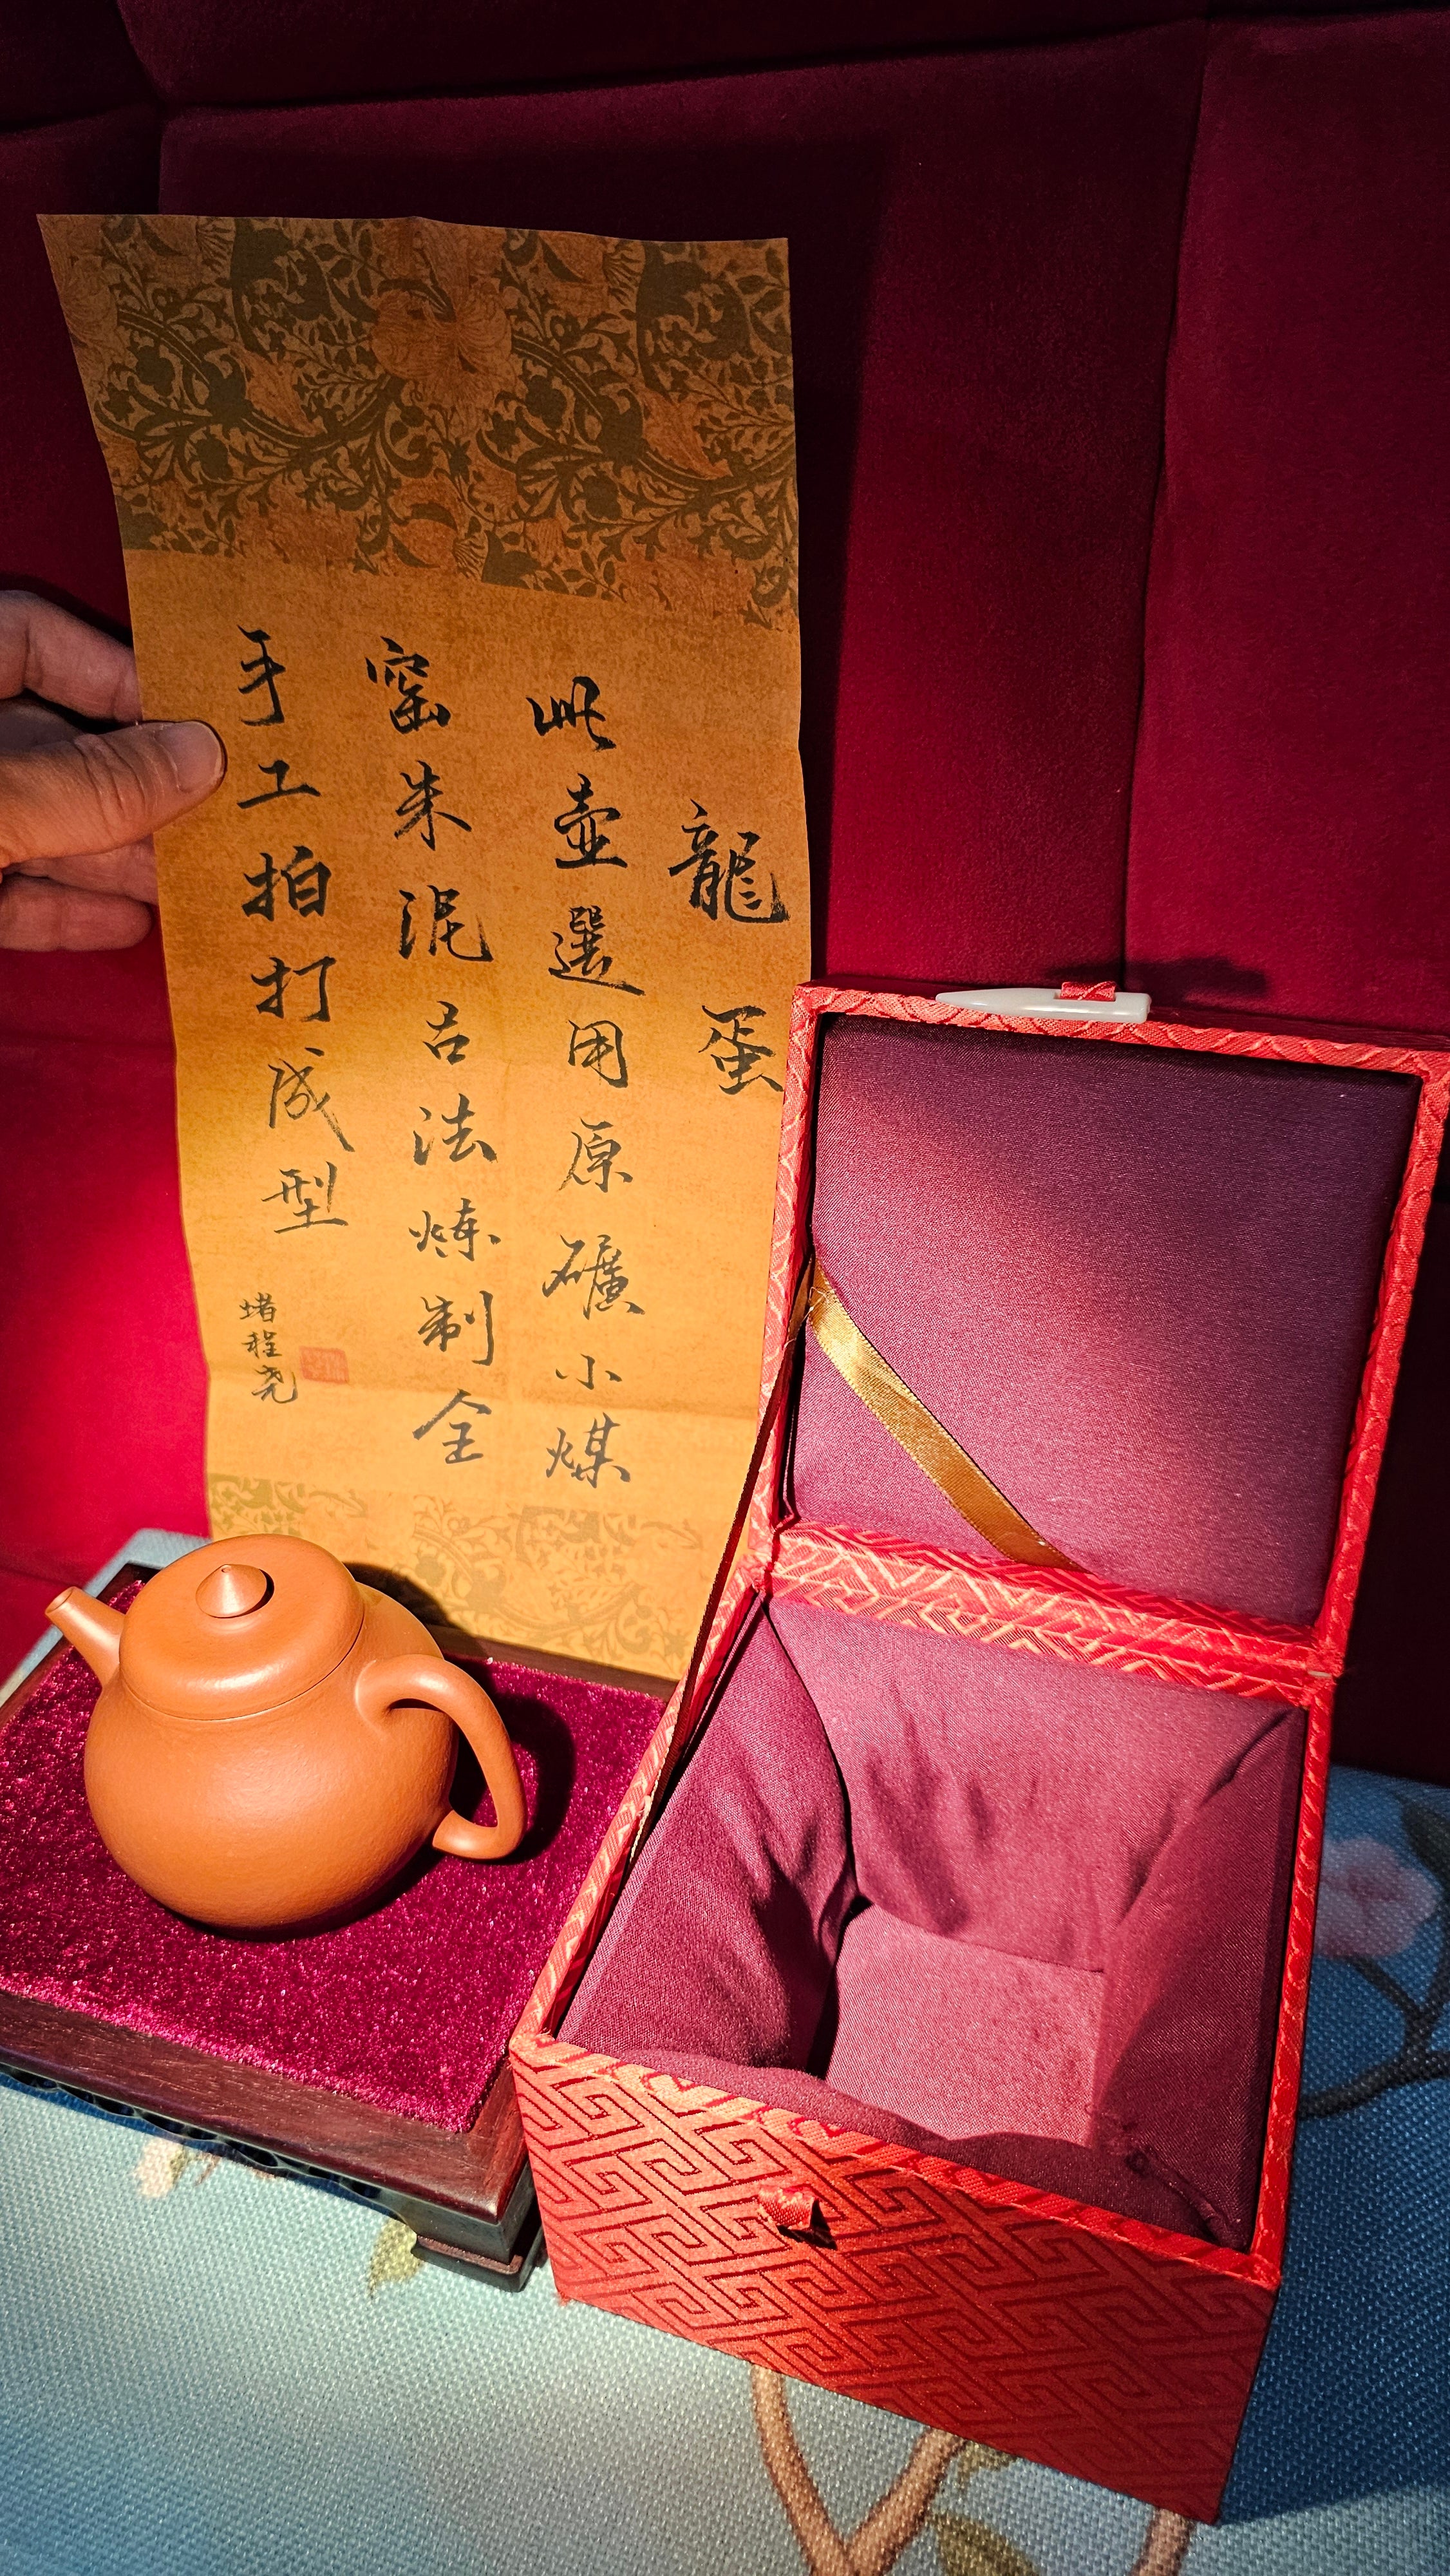 龍蛋
此壺選用原礦小煤
窑朱泥古法炼制全
手工拍打成型
堵程尧